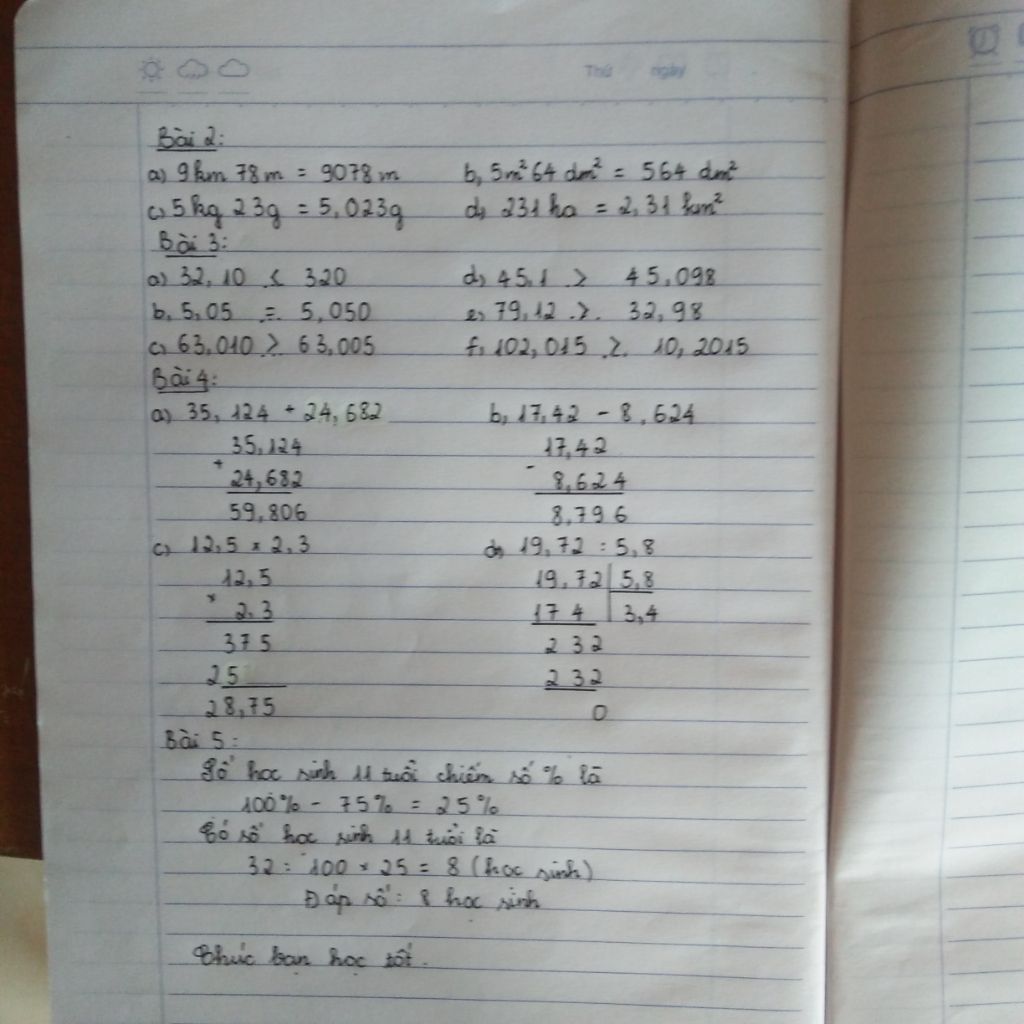 Thứ ngày
Bài 2:
a) 9km 78m = 9078m b, 5m² 64 dm² = 564 dm²
c, 5kg 23g = 5,023g d, 231 ha = 2,31 km²
Bài 3:
a) 32,10 < 320 d, 45,1 > 45,098
b, 5,05 = 5,050 e, 79,12 > 32,98
c, 63,010 > 63,005 f, 102,015 > 10,2015
Bài 4:
a) 35,124 + 24,682 b, 17,42 - 8,624
35,124 17,42
+ -
24,682 8,624
59,806 8,796
c) 12,5 × 2,3 d, 19,72 : 5,8
12,5 19,72 5,8
×
2,3 17 4 3,4
375 2 32
25 2 32
28,75 0
Bài 5:
Số học sinh 11 tuổi chiếm số % là
100% - 75% = 25%
Có số học sinh 11 tuổi là
32 : 100 × 25 = 8 (học sinh)
Đáp số: 8 học sinh
Chúc bạn học tốt.